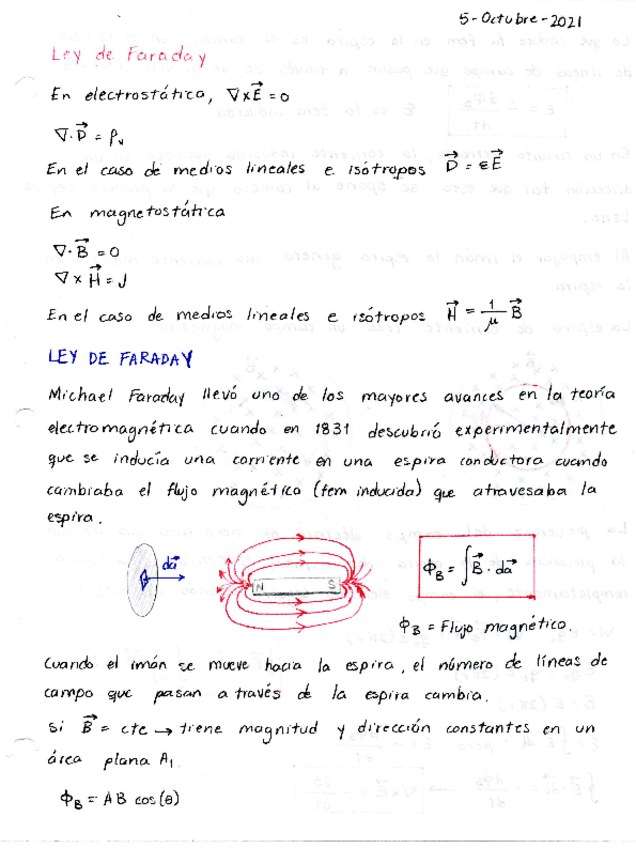 5-Octubre-2021
Ley de Faraday
En electrostática, ∇×E⃗ = 0
∇·D⃗ = ρᵥ
En el caso de medios lineales e isótropos D⃗ = εE⃗
En magnetostática
∇·B⃗ = 0
∇×H⃗ = J
En el caso de medios lineales e isótropos H⃗ = 1/μ B⃗
LEY DE FARADAY
Michael Faraday llevó uno de los mayores avances en la teoría
electromagnética cuando en 1831 descubrió experimentalmente
que se inducía una corriente en una espira conductora cuando
cambiaba el flujo magnético (fem inducida) que atravesaba la
espira.
da⃗
N S
Φ_B = ∫B⃗·da⃗
Φ_B = Flujo magnético.
Cuando el imán se mueve hacia la espira, el número de líneas de
campo que pasan a través de la espira cambia.
Si B⃗ = cte → tiene magnitud y dirección constantes en un
área plana A₁.
Φ_B = AB cos(θ)